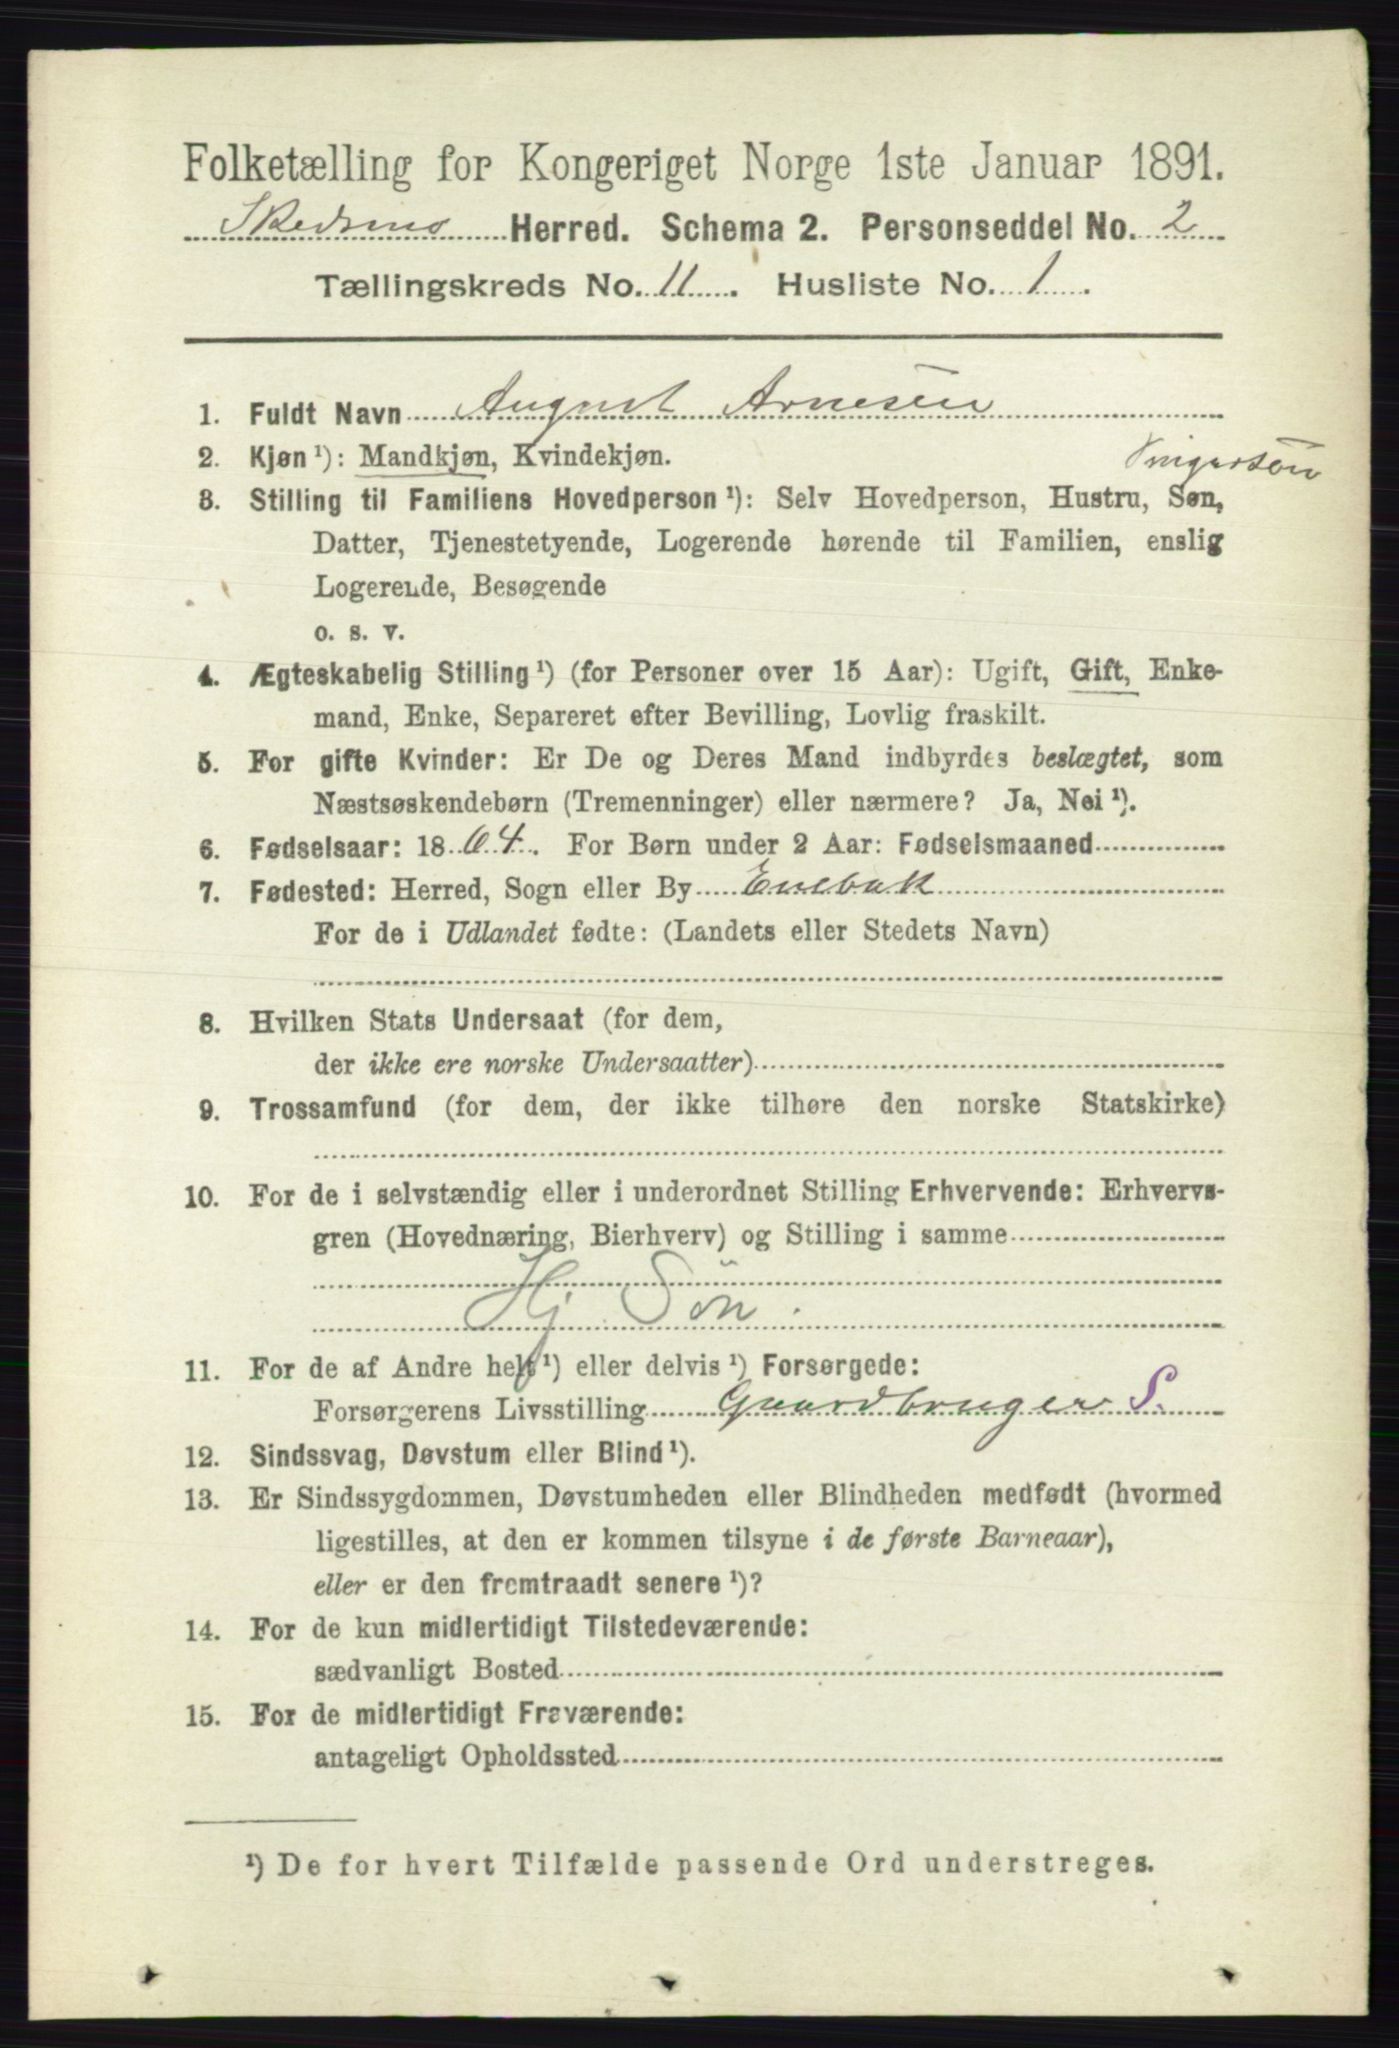 Folketælling for Kongeriget Norge 1ste Januar 1891.
Skedsmo Herred. Schema 2. Personseddel No. 2
Tællingskreds No. 11. Husliste No. 1.
1. Fuldt Navn August Arnesen
2. Kjøn ¹): Mandkjøn, Kvindekjøn.
3. Stilling til Familiens Hovedperson ¹): Selv Hovedperson, Hustru, Søn,
Datter, Tjenestetyende, Logerende hørende til Familien, enslig
Logerende, Besøgende
o. s. v.
4. Ægteskabelig Stilling ¹) (for Personer over 15 Aar): Ugift, Gift, Enke-
mand, Enke, Separeret efter Bevilling, Lovlig fraskilt.
5. For gifte Kvinder: Er De og Deres Mand indbyrdes beslægtet, som
Næstsøskendebørn (Tremenninger) eller nærmere? Ja, Nei ¹).
6. Fødselsaar: 1864. For Børn under 2 Aar: Fødselsmaaned
7. Fødested: Herred, Sogn eller By Enebak
For de i Udlandet fødte: (Landets eller Stedets Navn)
8. Hvilken Stats Undersaat (for dem,
der ikke ere norske Undersaatter)
9. Trossamfund (for dem, der ikke tilhøre den norske Statskirke)
10. For de i selvstændig eller i underordnet Stilling Erhvervende: Erhvervs-
gren (Hovednæring, Bierhverv) og Stilling i samme
Hj. Søn.
11. For de af Andre helt ¹) eller delvis ¹) Forsørgede:
Forsørgerens Livsstilling Gaardbruger S.
12. Sindssvag, Døvstum eller Blind ¹).
13. Er Sindssygdommen, Døvstumheden eller Blindheden medfødt (hvormed
ligestilles, at den er kommen tilsyne i de første Barneaar),
eller er den fremtraadt senere ¹)?
14. For de kun midlertidigt Tilstedeværende:
sædvanligt Bosted
15. For de midlertidigt Fraværende:
antageligt Opholdssted
¹) De for hvert Tilfælde passende Ord understreges.